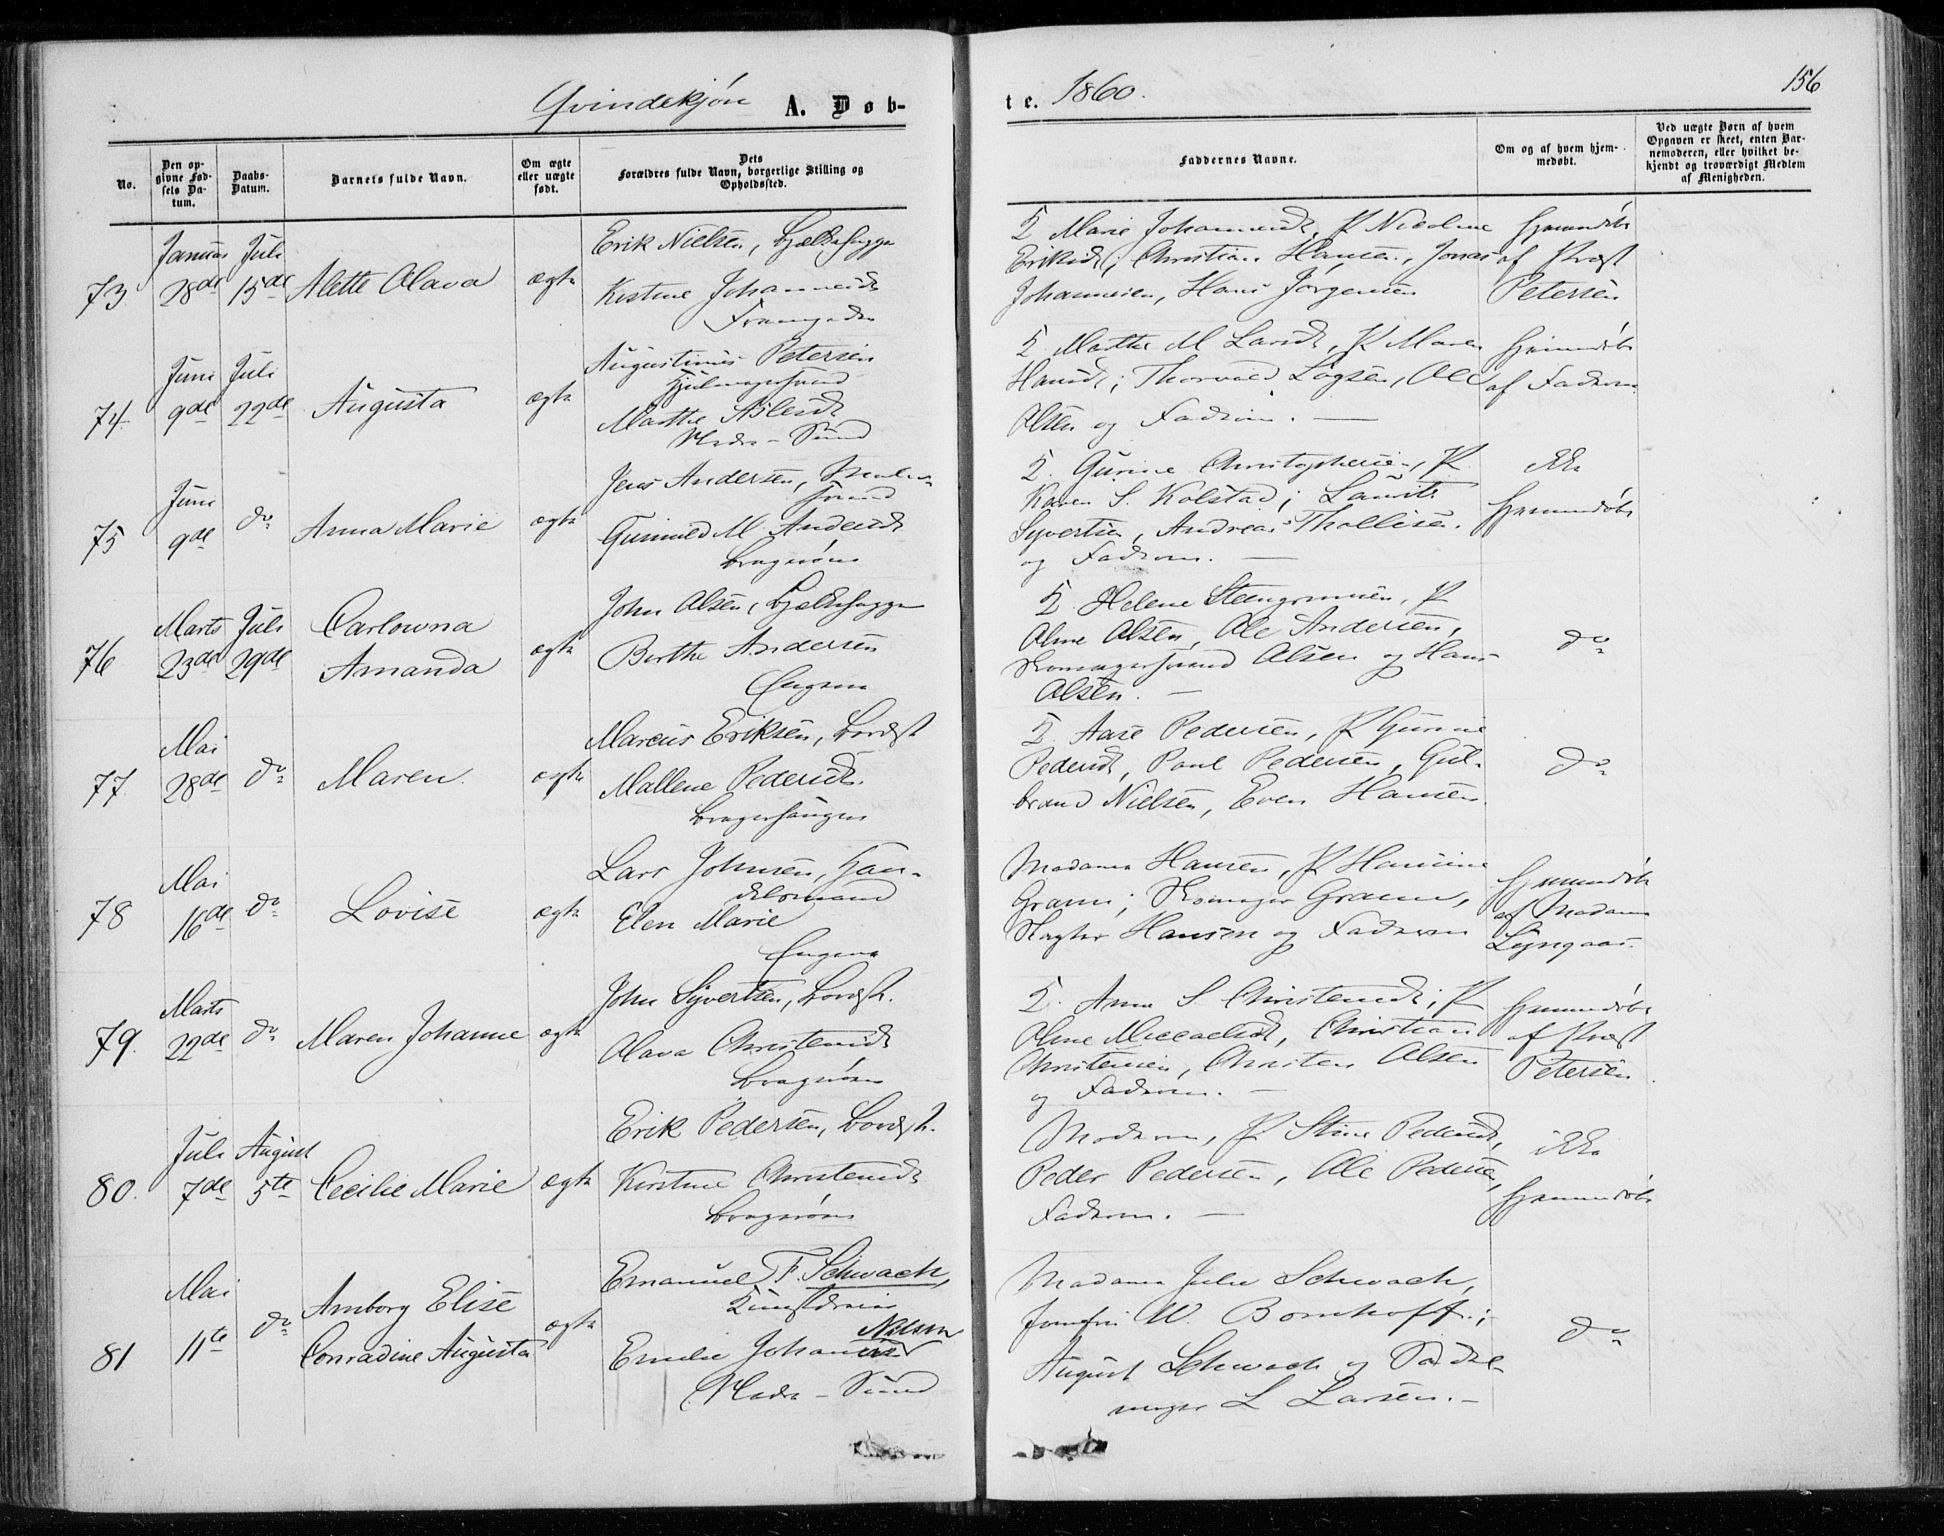 Qvindekjøn A. Døb-
te. 1860.
156
No.
Den op-
givne Fød-
sels Da-
tum.
Daabs-
Datum.
Barnets fulde Navn.
Om ægte
eller uægte
født.
Dets
Forældres fulde Navn, borgerlige Stilling og
Opholdssted.
Faddernes Navne.
Om og af hvem hjem-
medøbt.
Ved uægte Børn af hvem
Opgaven er skeet, enten Bar-
nemoderen, eller hvilket be-
kjendt og troværdigt Medlem
af Menigheden.
73
Januar
28de
Juli
15de
Alette Olava
ægte
Erik Nielsen,
Kirstine Johannesdt
K Marie Johannesdt, P Nicoline
Eriksdt; Christian Hansen, Jonas
Johannesen, Hans Jørgensen
hjemmedøbt
af Præst
Petersen
74
Juni
9de
Juli
22de
Augusta
ægte
Augustinus Petersen
Hjulmagersvend
Marthe
Nedre-Sund
K Marthe M Larsdt, P Maren
Hansdt; Thorvald Løgsen, Ole
Olsen og Faderen. —
hjemmedøbt
af Faderen
75
Juni
9de
do
Anna Marie
ægte
Jens Andersen,
svend
Gunnild M. Andersdt
Bragernes
K. Gurine Christophersen, P
Karen S. Kolstad; Lauritz
Syvertsen, Andreas Thollisen
og Faderen. —
ikke
hjemmedøbt
76
Marts
23de
Juli
29de
Carlowna
Amanda
ægte
John Olsen, Bjelkehugger
Berthe Andersen
Engene
K. Helene Steengrimsen, P
Oline Olsen, Ole Andersen,
Skomagersvend Olsen og Hans
Olsen. —
do
77
Mai
28de
do
Maren.
ægte
Marcus Eriksen, Bordst
Mallene Pedersdt.
K. Aase Pedersen, P Gurine
Pedersdt, Paul Pedersen, Gul-
brand Nielsen, Even Hansen.
do
78
Mai
16de
do
Lovise
ægte
Lars Johnsen, Han-
delsmand
Elen Marie
Engene
Madame Hansen, P Hansine
Gram; Skomager Gram,
Slagter Hansen og Faderen
hjemmedøbt
af Madame
Lyngaas.
79.
Marts
22de
do
Maren Johanne
ægte
John Syvertsen, Bordst.
Olava Christensdt
Bragernes
K. Anne S Christensdt; P
Oline Miccaelsdt, Christian
Christensen, Christen Olsen
og Faderen. —
hjemmedøbt
af Præst
Petersen
80.
Juli
7de
August
5te
Cecilie Marie
ægte
Erik Pedersen, Bordst.
Kirstine Christensdt
Bragernes
Moderen, P Stine Pedersdt,
Peder Pedersen, Ole Pedersen,
Faderen. —
ikke
hjemmedøbt
81
Mai
11te
do
Amborg Elise
Conradine Augusta
ægte
Emanuel F. Schwach,
Kunstdreier
Emelie Johanne Nilsen
Nedre-Sund
Madame Julie Schwach,
Jomfru W. Bomhoff;
August Schwach og Sadel-
mager L Larsen. —
do